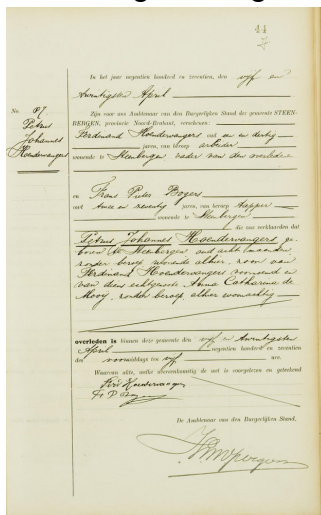 44
In het jaar negentien honderd en zeventien, den vijf en
twintigsten April
No. 87
Petrus
Johannes
Hoendervangers
Zijn voor ons Ambtenaar van den Burgerlijken Stand der gemeente STEEN-
BERGEN, provincie Noord-Brabant, verschenen:
Ferdinand Hoendervangers oud en dertig
jaren, van beroep arbeider
wonende te Steenbergen vader van den overledene
en Frans Pieter Bogers
oud twee en zeventig jaren, van beroep tapper
wonende te Steenbergen
die ons verklaarden dat
Petrus Johannes Hoendervangers ge-
boren te Steenbergen oud acht maanden
zonder beroep, wonende alhier, zoon van
Ferdinand Hoendervangers voornoemd en
van diens echtgenoote Anna Catharina de
Mooy, zonder beroep alhier woonachtig
overleden is binnen deze gemeente den vijf en twintigsten
April negentien honderd en zeventien
des voormiddags ten vijf ure.
Waarvan akte, welke overeenkomstig de wet is voorgelezen en geteekend
Ferd Hoendervangers
F. P. Bogers
De Ambtenaar van den Burgerlijken Stand,